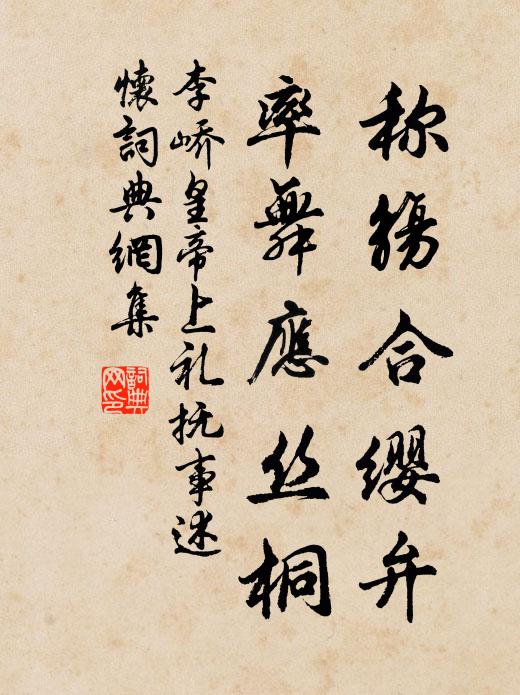 称觞合缨弁
率舞應丝桐
李峤皇帝上礼抚事述
懷詞典網集
詞典
网印